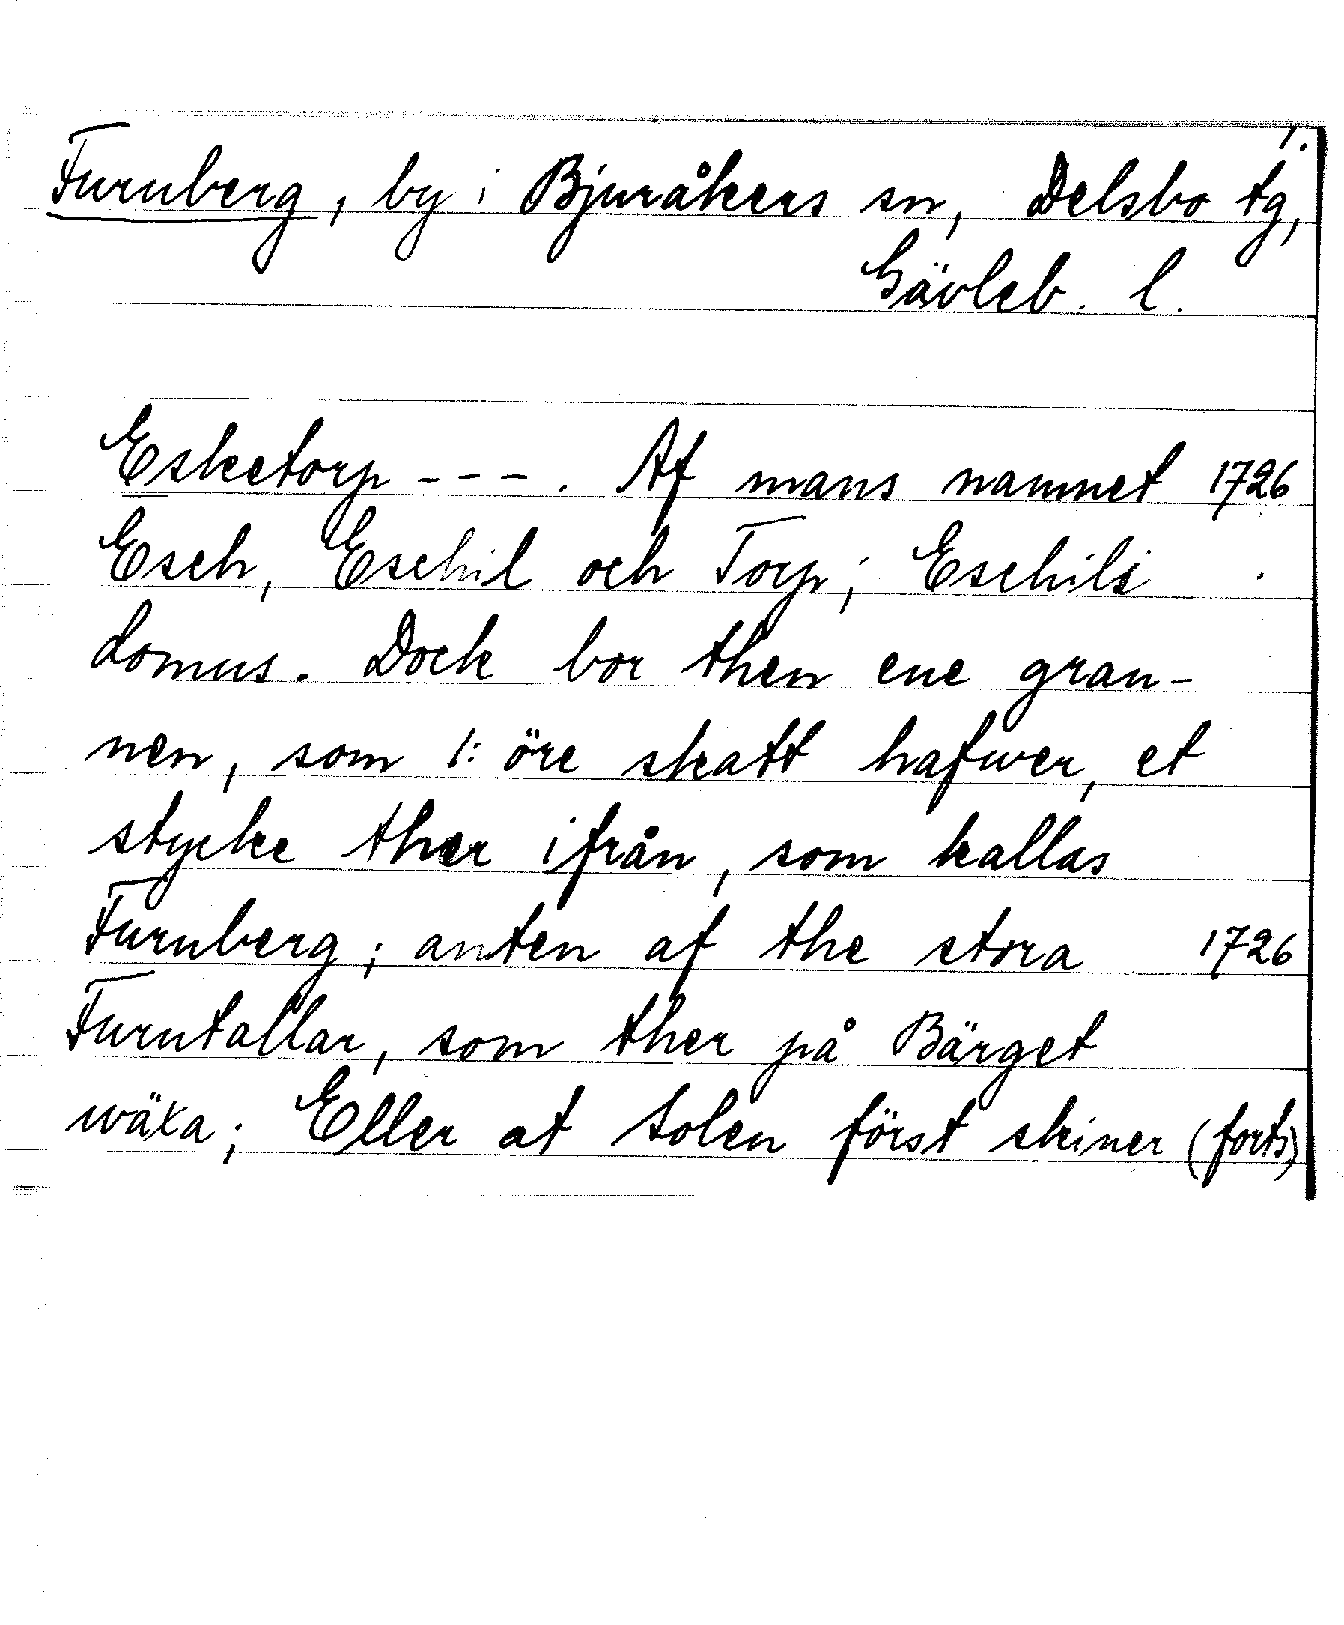 1.
Furuberg, by i Bjuråkers sn, Delsbo tg,
Gävleb. l.
Esketorp - - - . Af mans namnet 1726
Esch, Eschil och Torp; Eschili
domus. Dock bor then ene gran-
nen, som 1: öre skatt hafwer, et
stycke ther ifrån, som kallas
Furuberg; anten af the stora 1726
Furutallar, som ther på Bärget
wäxa; Eller at Solen först skiner (forts)